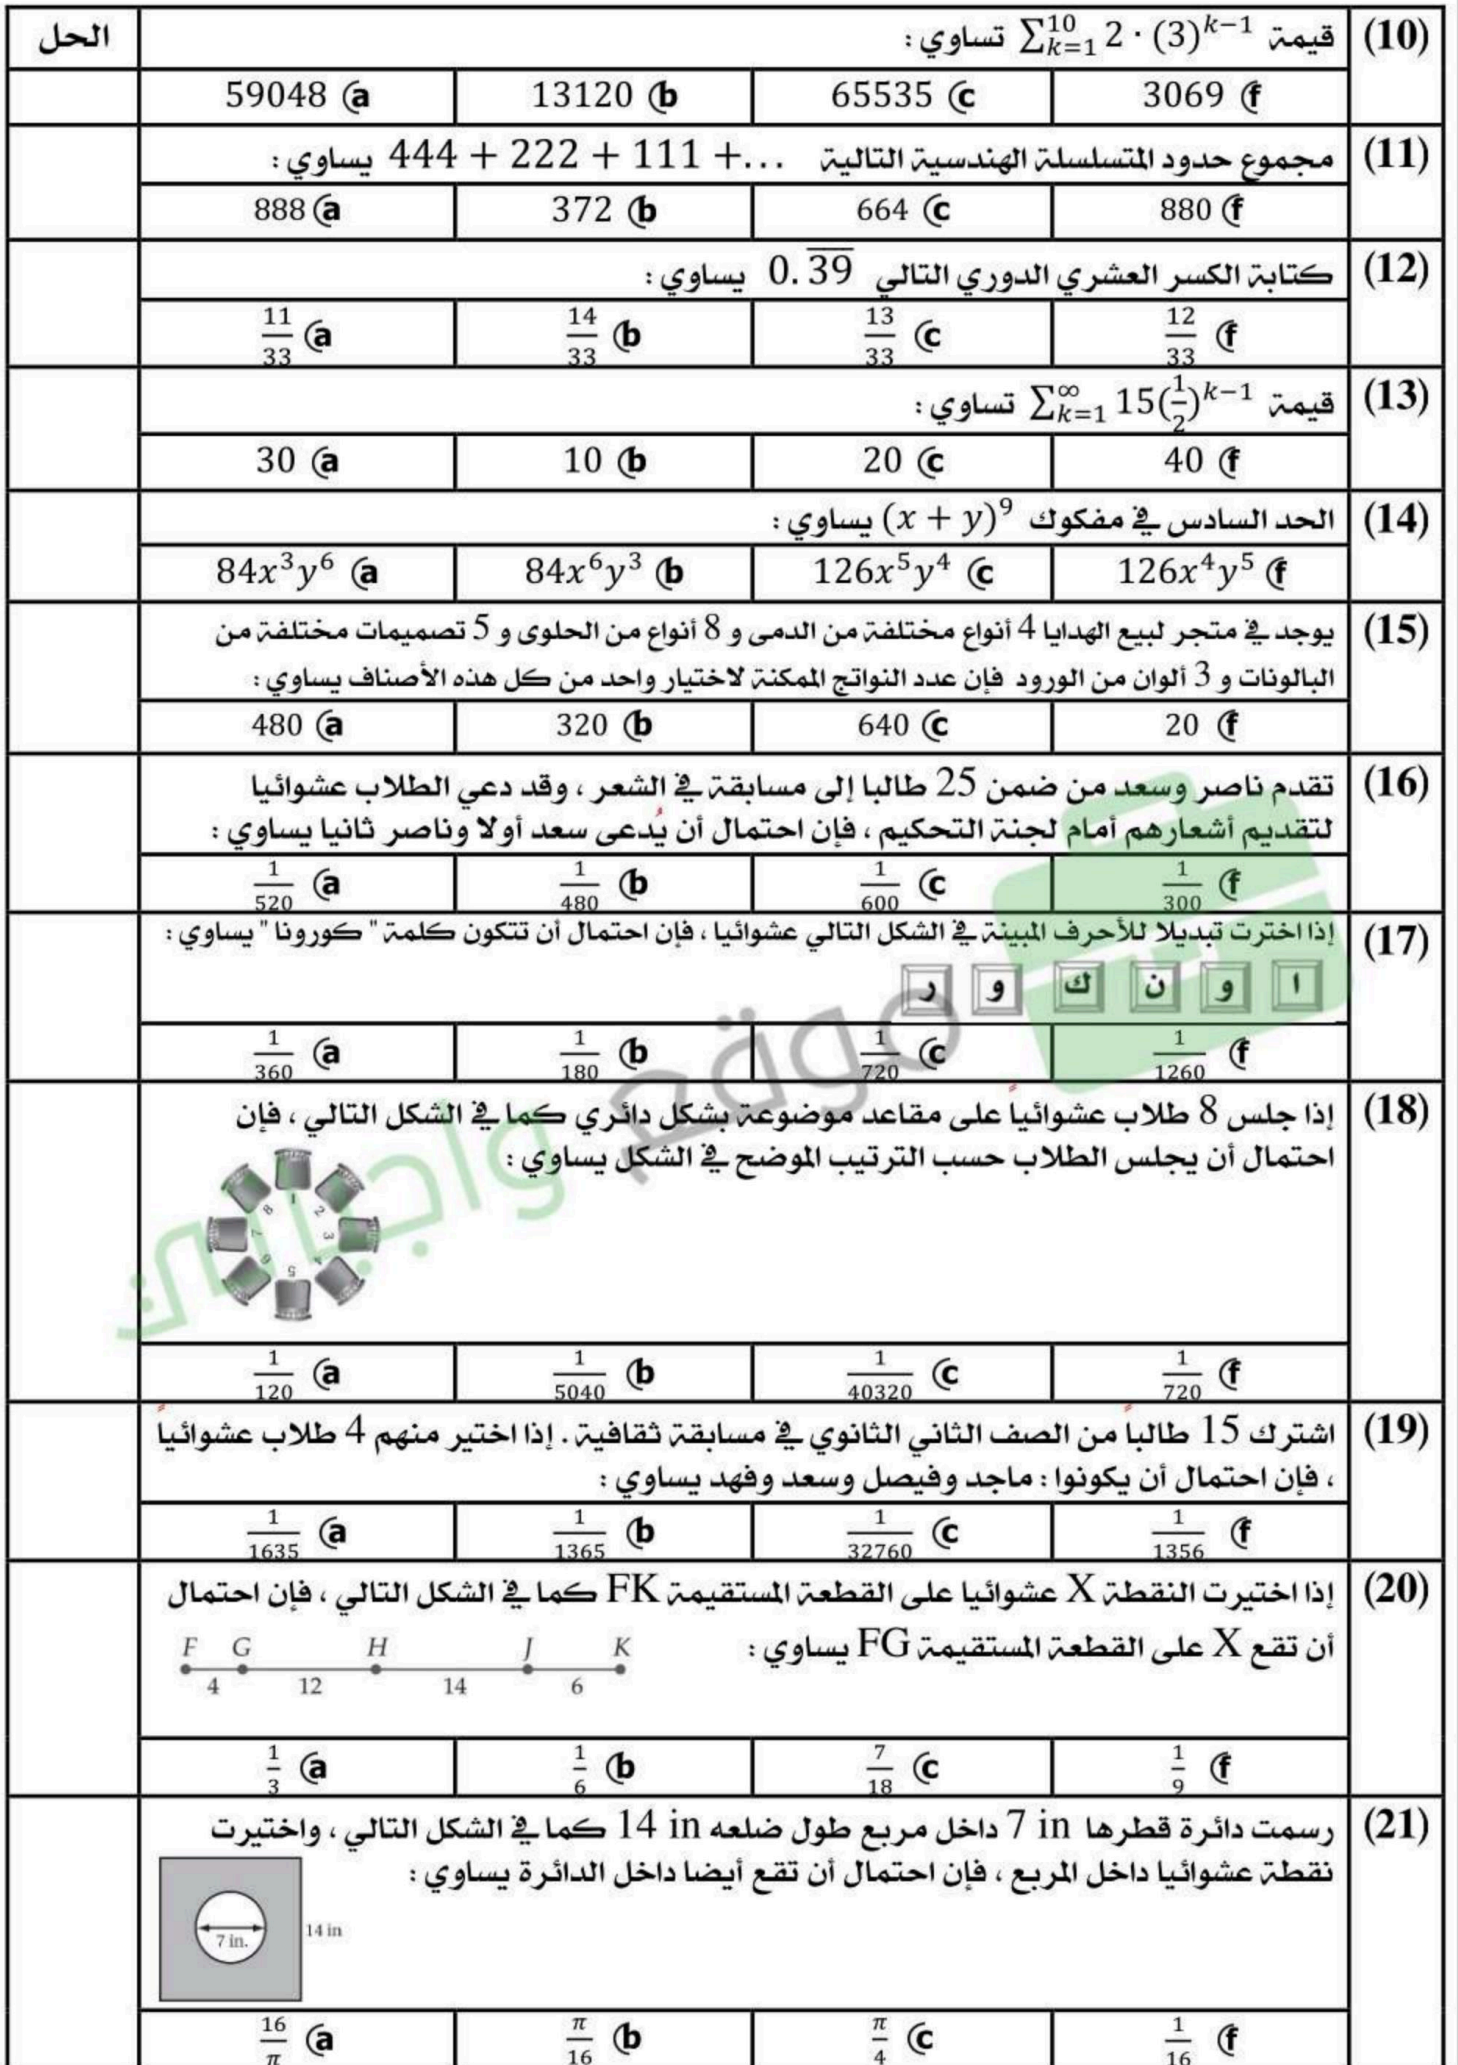 (10) قيمة $\sum_{k=1}^{10} 2 \cdot (3)^{k-1}$ تساوي : الحل
f) 3069 c) 65535 b) 13120 a) 59048
(11) مجموع حدود المتسلسلة الهندسية التالية 444 + 222 + 111 +… يساوي :
f) 880 c) 664 b) 372 a) 888
(12) كتابة الكسر العشري الدوري التالي $0.\overline{39}$ يساوي :
f) 12/33 c) 13/33 b) 14/33 a) 11/33
(13) قيمة $\sum_{k=1}^{\infty} 15(\frac{1}{2})^{k-1}$ تساوي :
f) 40 c) 20 b) 10 a) 30
(14) الحد السادس في مفكوك $(x + y)^9$ يساوي :
f) $126x^4y^5$ c) $126x^5y^4$ b) $84x^6y^3$ a) $84x^3y^6$
(15) يوجد في متجر لبيع الهدايا 4 أنواع مختلفة من الدمى و 8 أنواع من الحلوى و 5 تصميمات مختلفة من
البالونات و 3 ألوان من الورود فإن عدد النواتج الممكنة لاختيار واحد من كل هذه الأصناف يساوي :
f) 20 c) 640 b) 320 a) 480
(16) تقدم ناصر وسعد من ضمن 25 طالبا إلى مسابقة في الشعر ، وقد دعي الطلاب عشوائيا
لتقديم أشعارهم أمام لجنة التحكيم ، فإن احتمال أن يُدعى سعد أولا وناصر ثانيا يساوي :
f) 1/300 c) 1/600 b) 1/480 a) 1/520
(17) إذا اخترت تبديلا للأحرف المبينة في الشكل التالي عشوائيا ، فإن احتمال أن تتكون كلمة " كورونا " يساوي :
ا و ن ك و ر
f) 1/1260 c) 1/720 b) 1/180 a) 1/360
(18) إذا جلس 8 طلاب عشوائياً على مقاعد موضوعة بشكل دائري كما في الشكل التالي ، فإن
احتمال أن يجلس الطلاب حسب الترتيب الموضح في الشكل يساوي :
1 2 3 4 5 6 7 8
موقع واجباتي
f) 1/720 c) 1/40320 b) 1/5040 a) 1/120
(19) اشترك 15 طالباً من الصف الثاني الثانوي في مسابقة ثقافية . إذا اختير منهم 4 طلاب عشوائياً
، فإن احتمال أن يكونوا : ماجد وفيصل وسعد وفهد يساوي :
f) 1/1356 c) 1/32760 b) 1/1365 a) 1/1635
(20) إذا اختيرت النقطة X عشوائيا على القطعة المستقيمة FK كما في الشكل التالي ، فإن احتمال
أن تقع X على القطعة المستقيمة FG يساوي :
F G H J K
4 12 14 6
f) 1/9 c) 7/18 b) 1/6 a) 1/3
(21) رسمت دائرة قطرها 7 in داخل مربع طول ضلعه 14 in كما في الشكل التالي ، واختيرت
نقطة عشوائيا داخل المربع ، فإن احتمال أن تقع أيضا داخل الدائرة يساوي :
7 in.
14 in
f) 1/16 c) π/4 b) π/16 a) 16/π